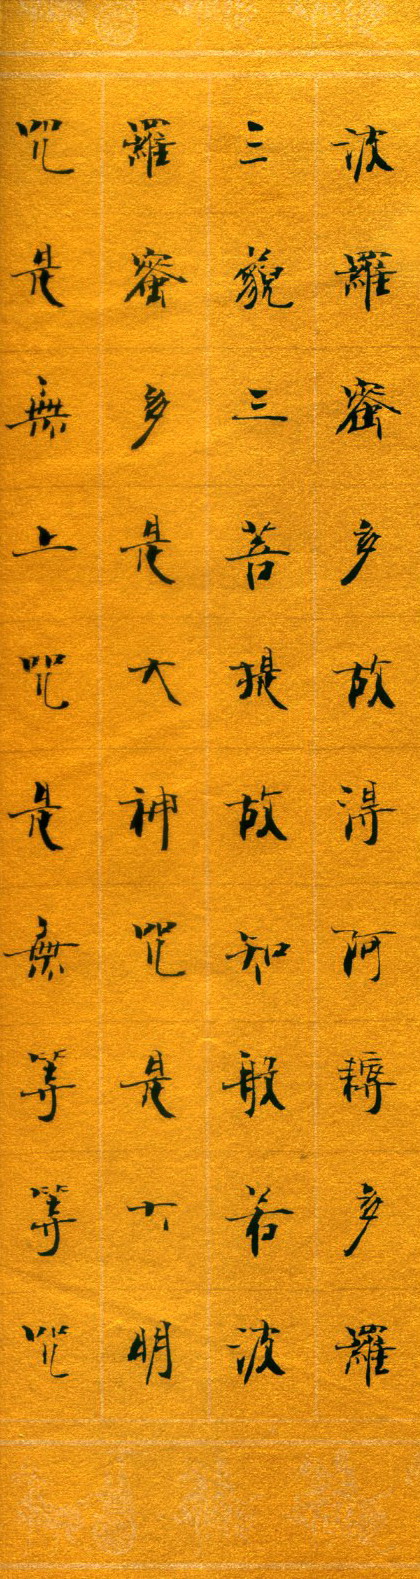 波羅蜜多故得阿耨多羅
三藐三菩提故知般若波
羅蜜多是大神咒是大明
咒是無上咒是無等等咒